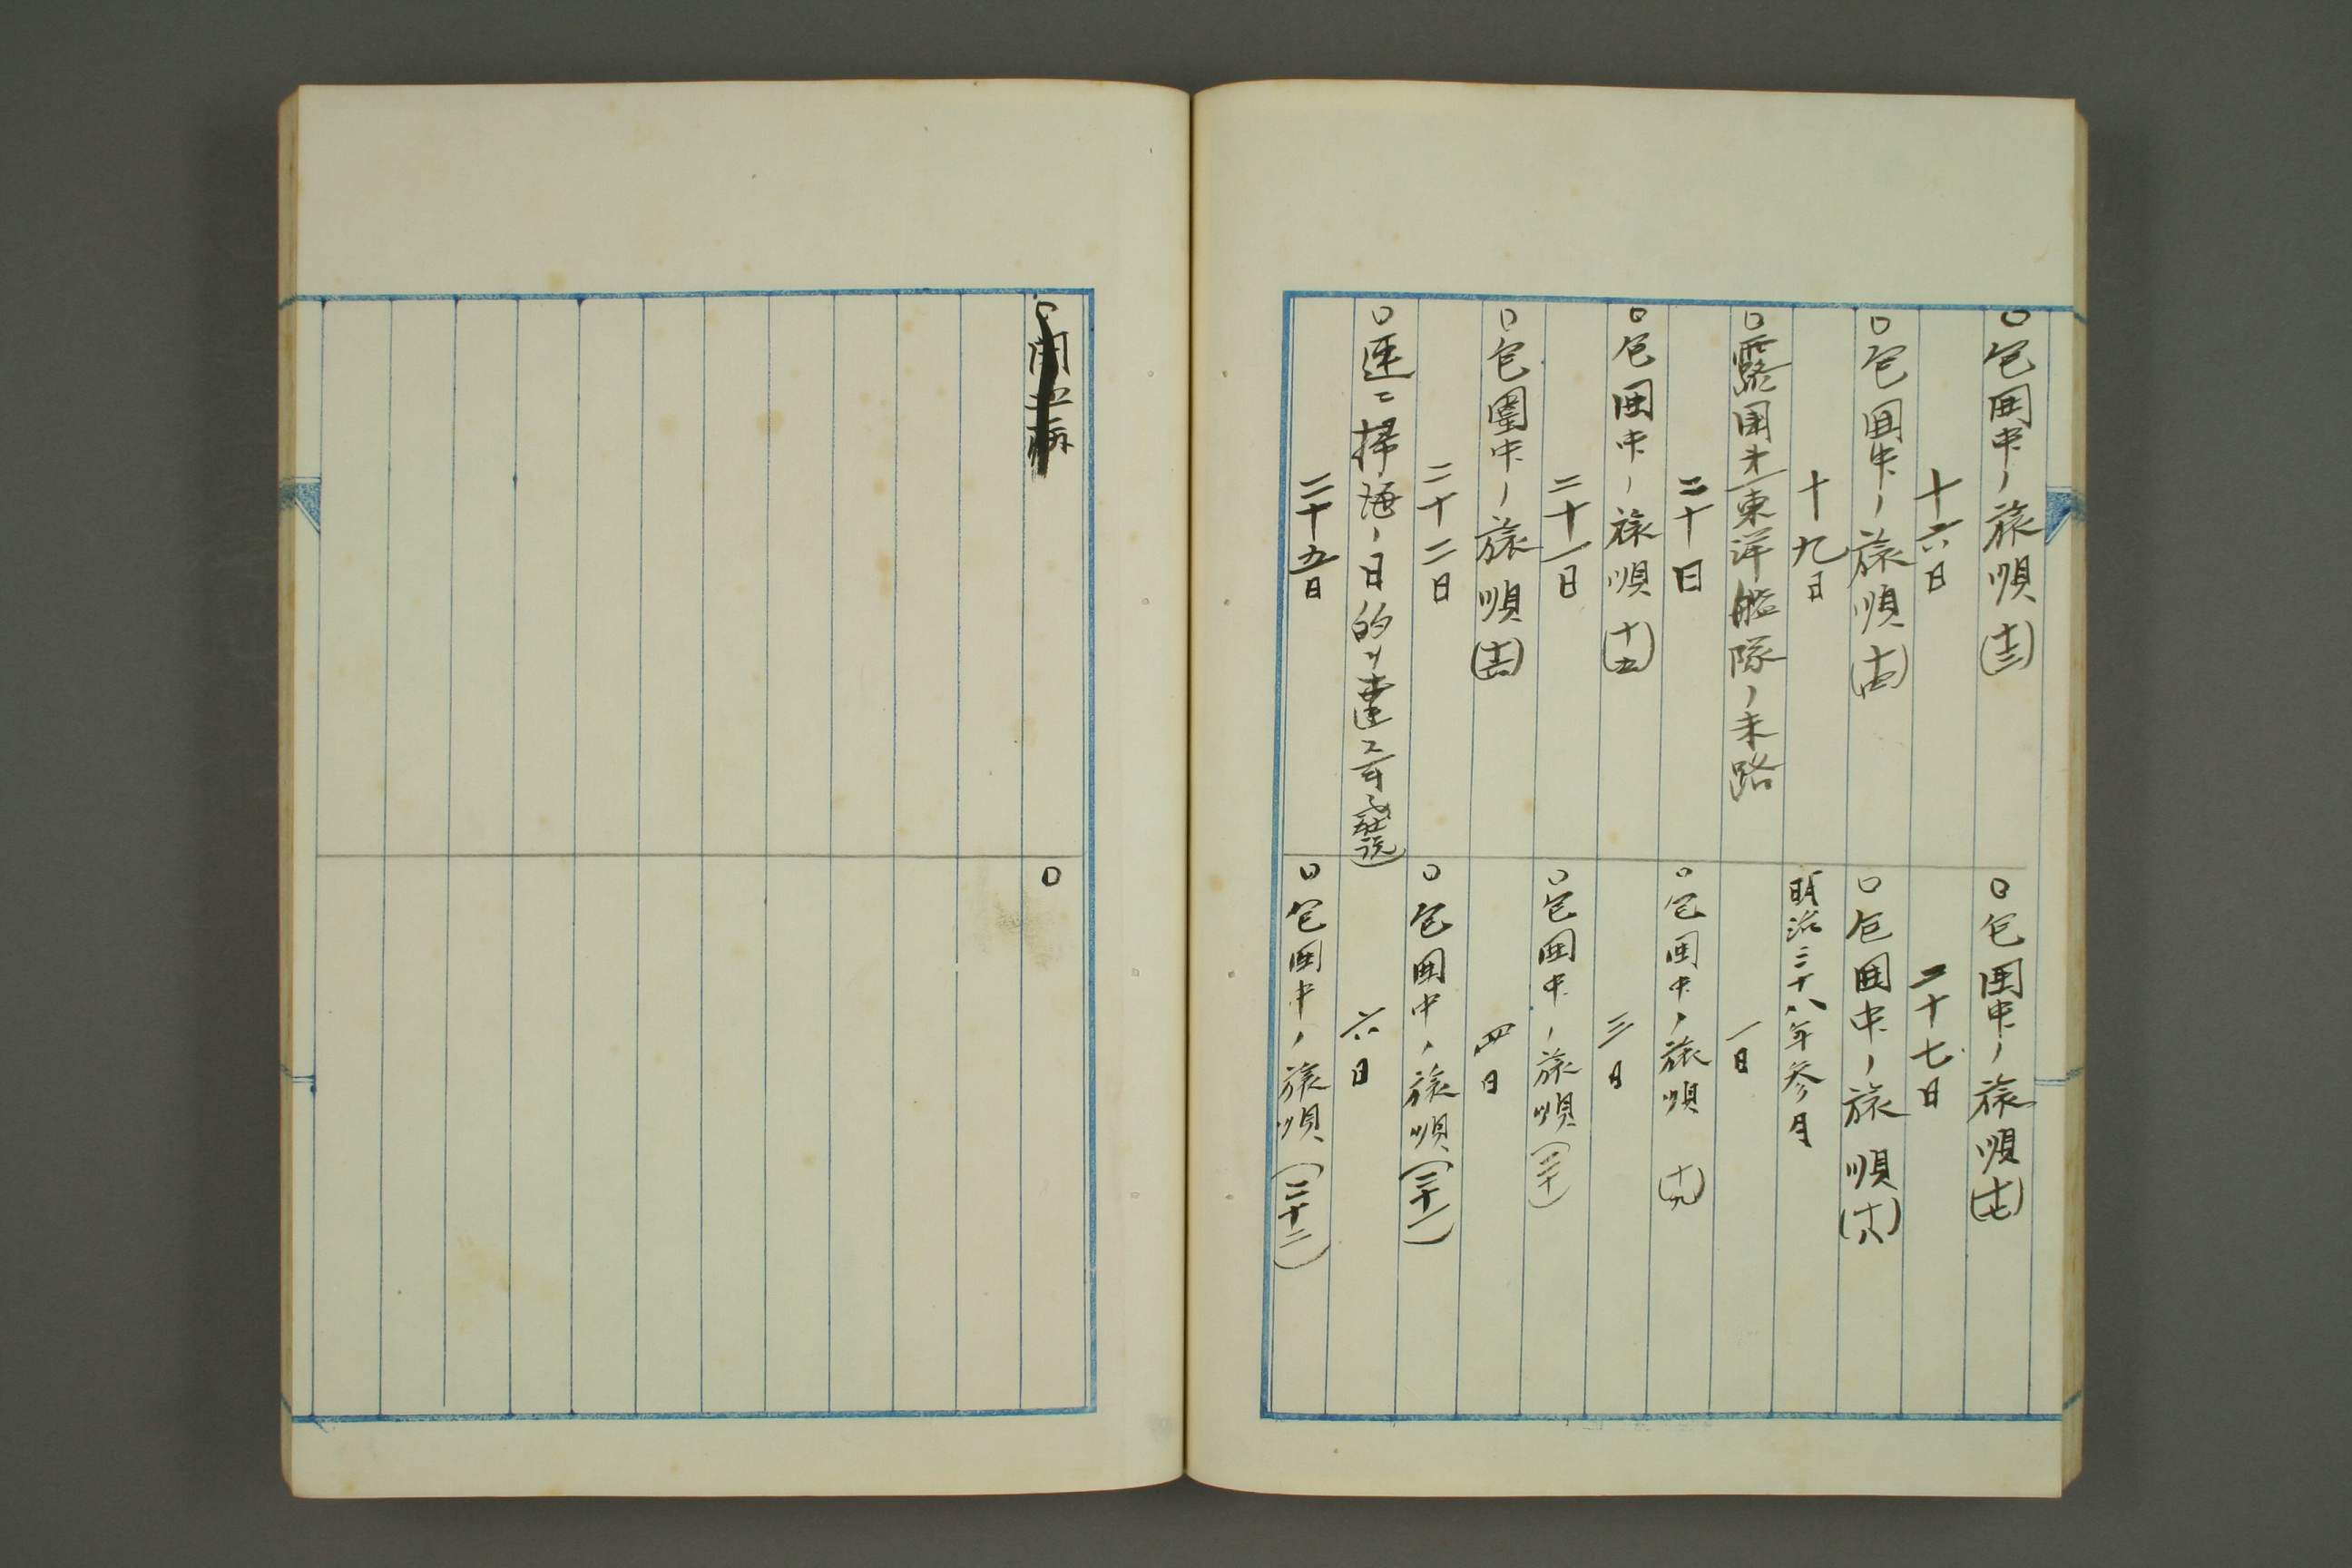 ○包囲中ノ旅順(十三)
十六日
○包囲中ノ旅順(十四)
十九日
○露国才一東洋艦隊ノ末路
二十日
○包囲中ノ旅順(十五)
二十一日
○包圍中ノ旅順(十六)
二十二日
○速ニ掃海ノ目的ヲ達ス可シ(社説)
二十五日
○包囲中ノ旅順(十七)
二十七日
○包囲中ノ旅順(十八)
明治三十八年参月
一日
○包囲中ノ旅順(十九)
三日
○包囲中ノ旅順(二十)
四日
○包囲中ノ旅順(二十一)
六日
○包囲中ノ旅順(二十二)
○